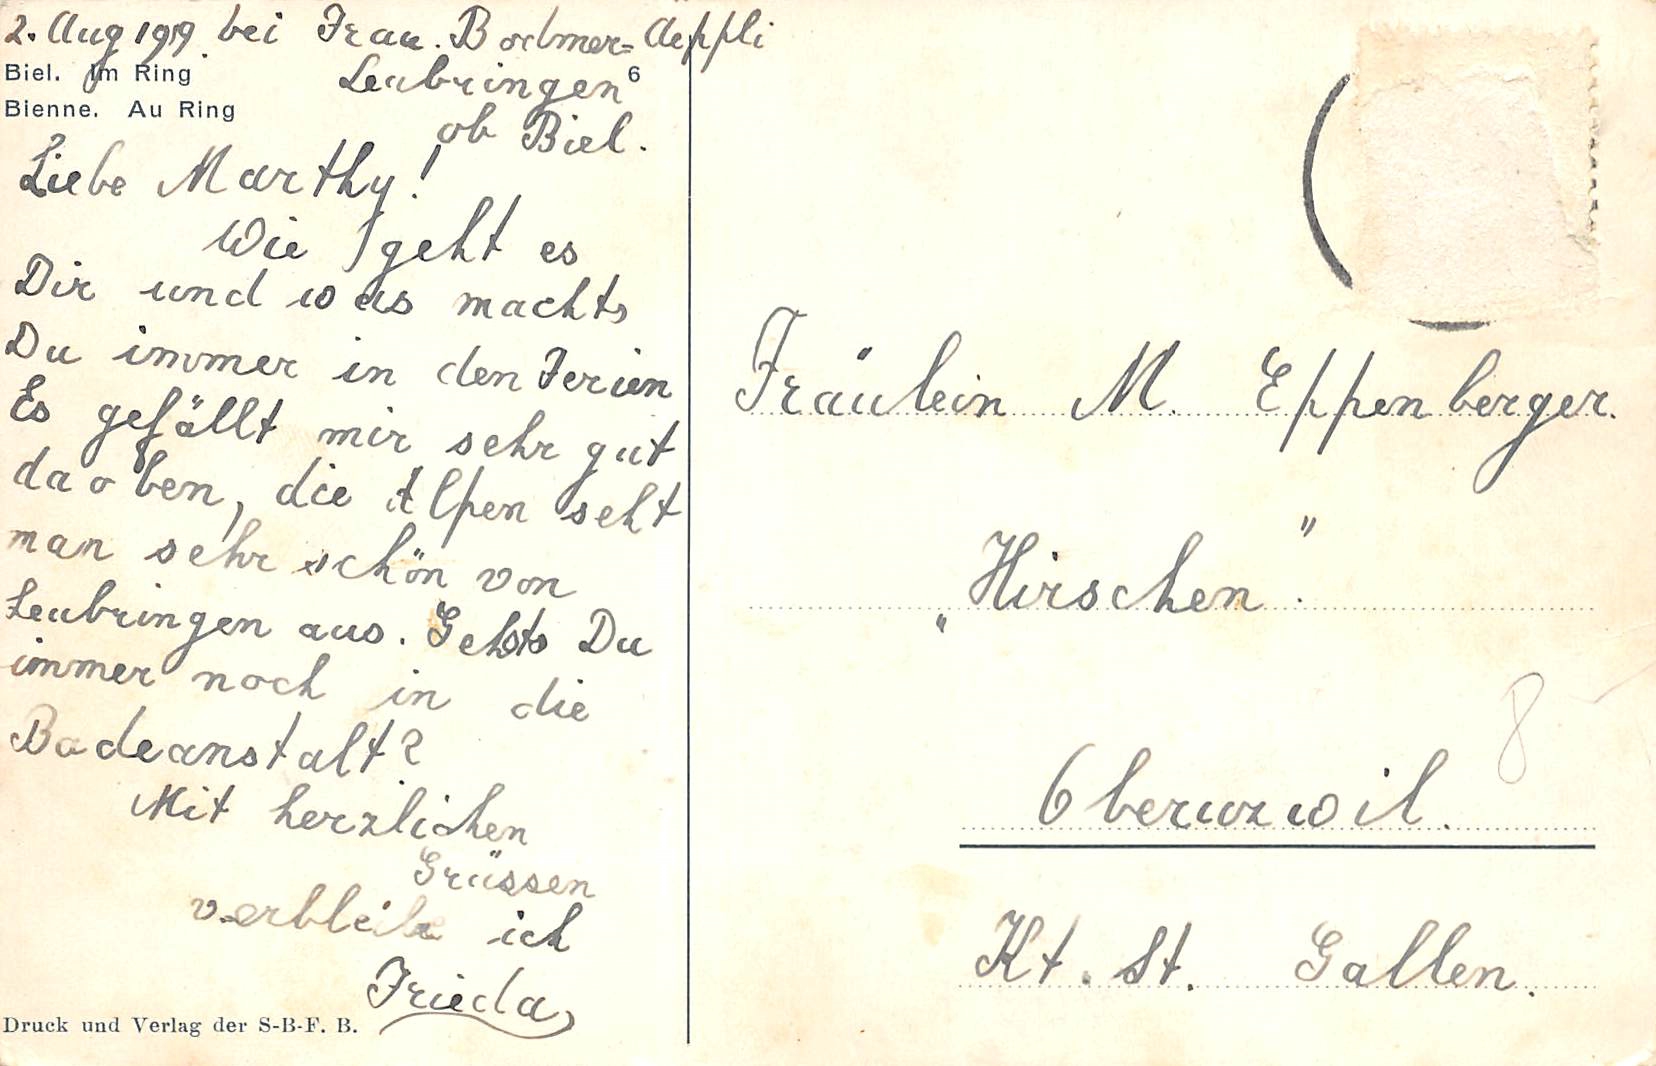 2. Aug 1919. bei Frau. Bodmer-Aeppli
Biel. Im Ring
Leubringen
6
Bienne. Au Ring
ob Biel.
Liebe Marthy!
Wie geht es
Dir und was machts
Du immer in den Ferien
Es gefällt mir sehr gut
da oben, die Alpen seht
man sehr schön von
Leubringen aus. Gehsts Du
immer noch in die
Badeanstalt?
Mit herzlichen
Grüssen
verbleibe ich
Frieda
Druck und Verlag der S-B-F. B.
Fräulein M. Eppenberger.
„Hirschen".
Oberuzwil.
8
Kt. St. Gallen.